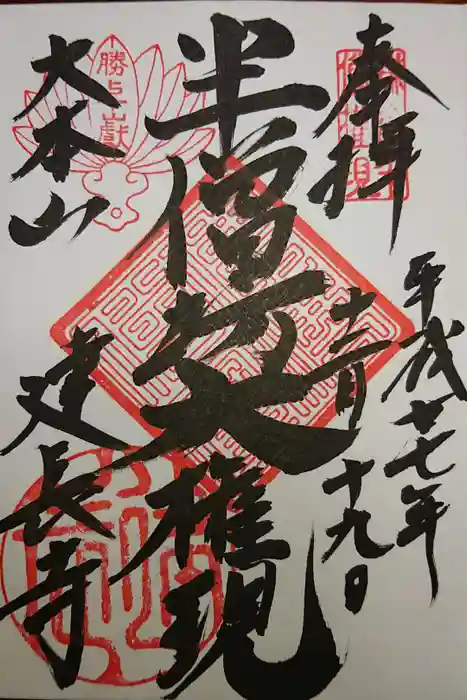 奉拝
平成廿七年
十二月十九日
半僧坊大権現
大本山
建長寺
勝上嶽